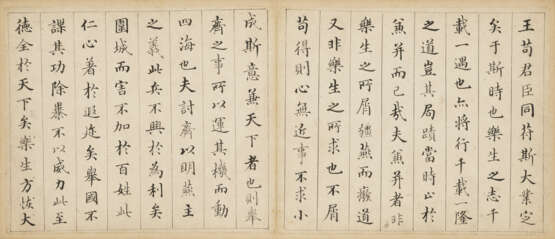 王苟君臣同符斯大業定
矣于斯時也樂生之志千
載一遇也亦將行千載一隆
之道豈其局蹟當時止於
兼并而已哉夫兼并者非
樂生之所屑彊燕而廢道
又非樂生之所求也不屑
苟得則心無近事不求小
成斯意兼天下者也則舉
齊之事所以運其機而動
四海也夫討齊以明燕主
之義此兵不興於為利矣
圍城而害不加於百姓此
仁心著於遐迩矣舉國不
謀其功除暴不以威力此至
德全於天下矣樂生方恢大